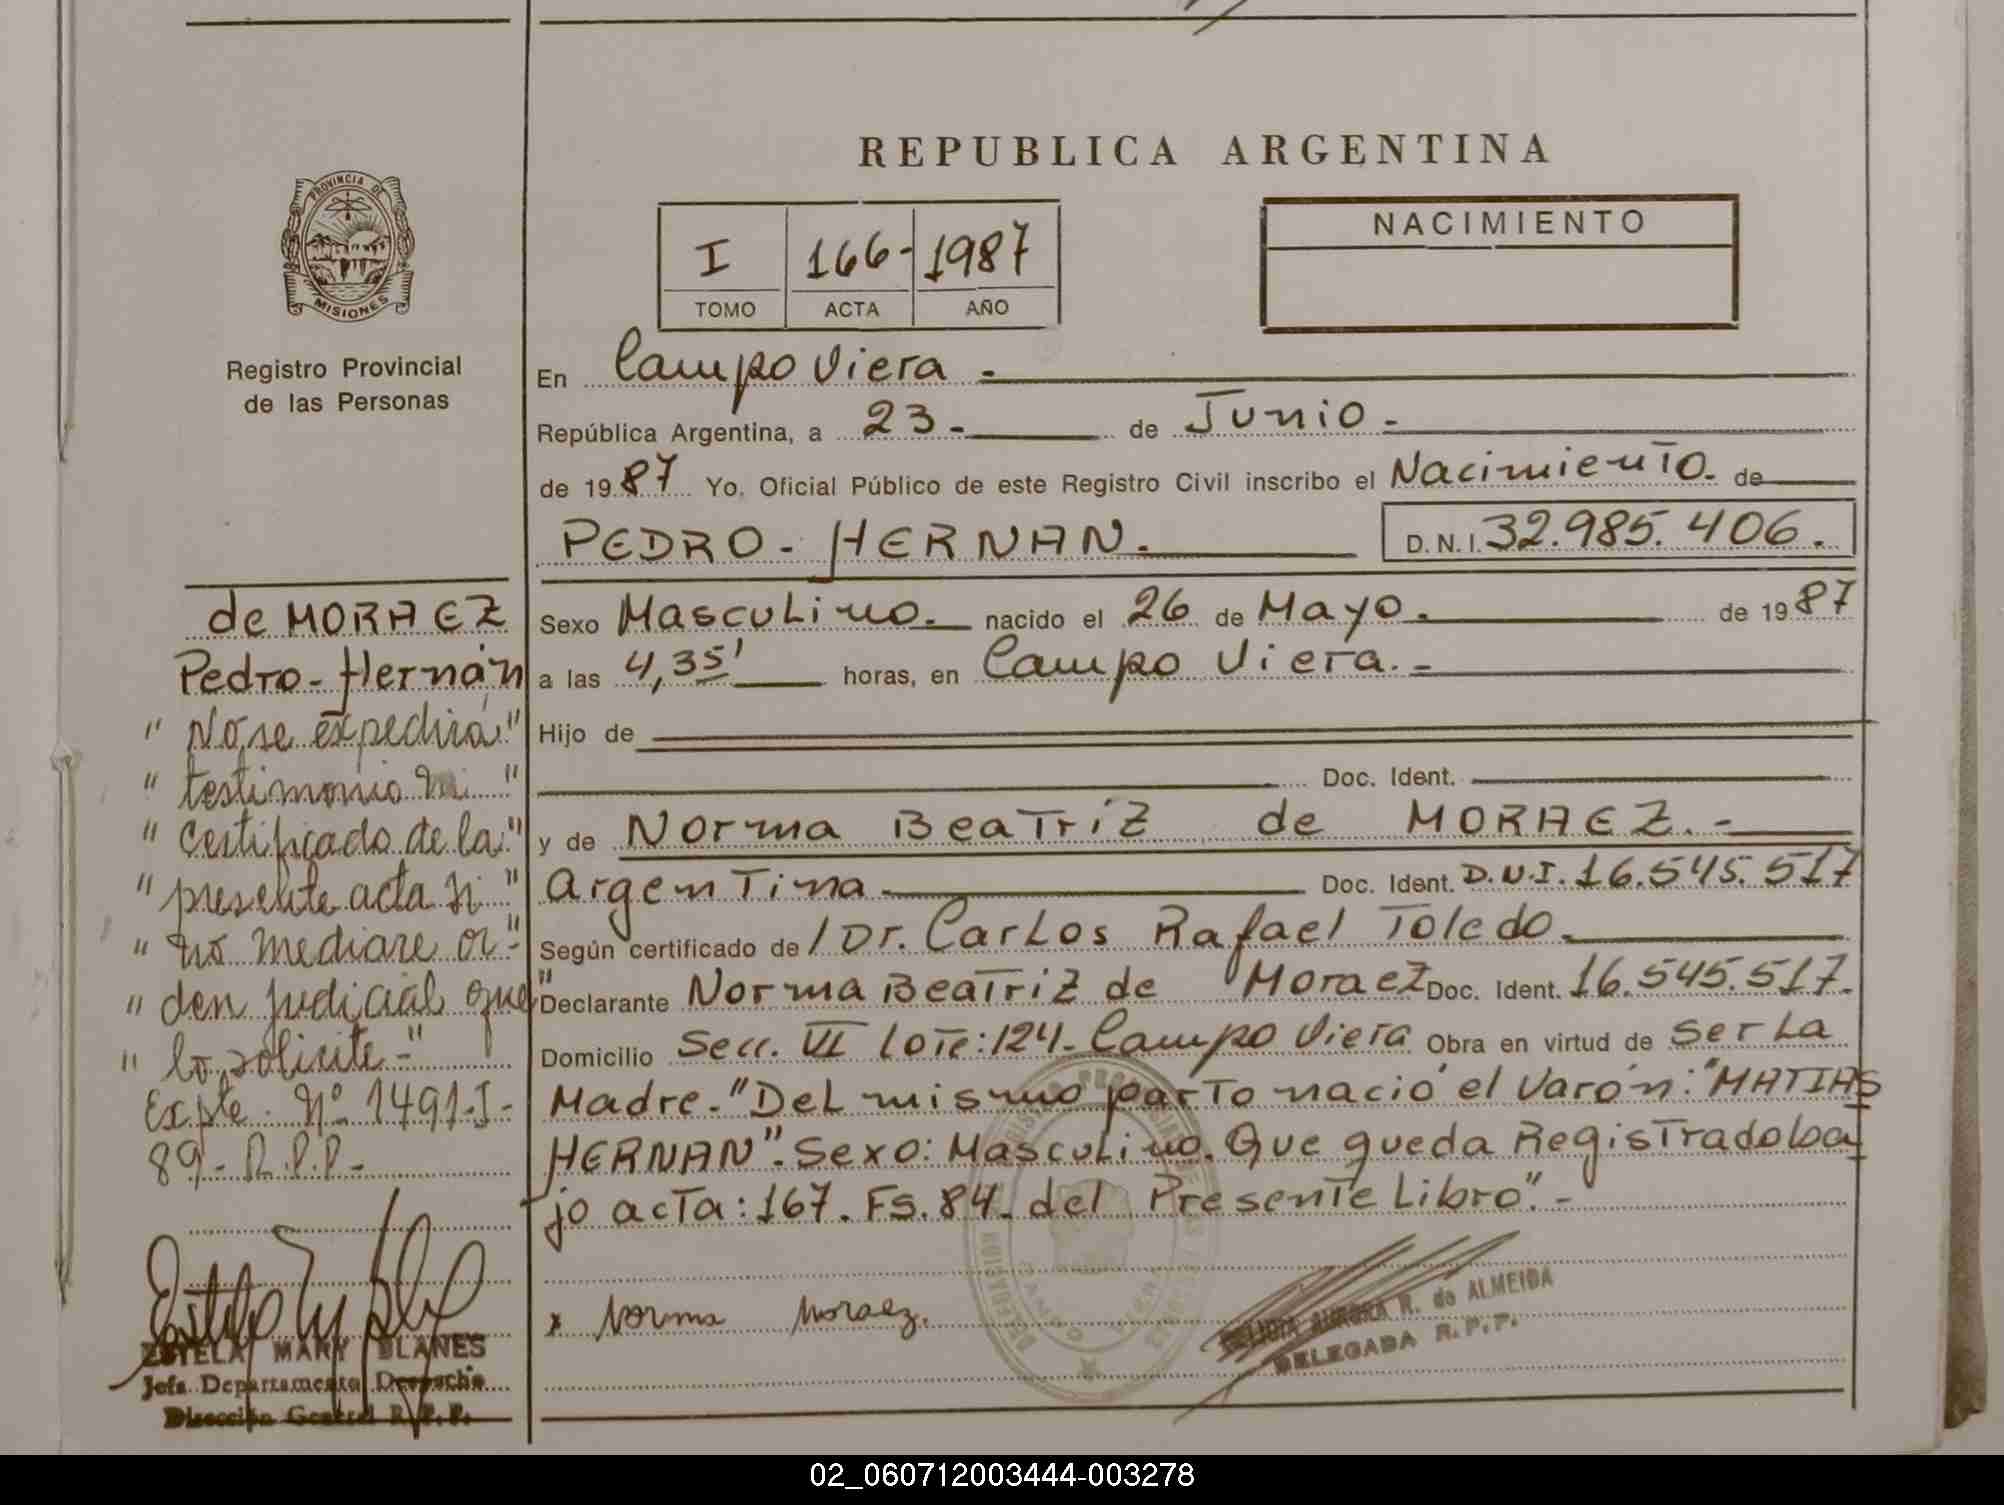 REPUBLICA ARGENTINA
PROVINCIA DE
MISIONES
Registro Provincial
de las Personas
I 166- 1987
TOMO ACTA AÑO
NACIMIENTO
En Campo Viera -
República Argentina, a 23.- de Junio.-
de 19 87 Yo. Oficial Público de este Registro Civil inscribo el Nacimiento. de
PEDRO - HERNAN.- D.N.I. 32.985.406.
Sexo Masculino. nacido el 26 de Mayo. de 19 87
a las 4,35' horas, en Campo Viera.-
Hijo de
Doc. Ident.
y de Norma Beatríz de MORAEZ.-
argentina Doc. Ident. D.N.I. 16.545.517
Según certificado de / Dr. Carlos Rafael Toledo.
Declarante Norma Beatriz de Moraez Doc. Ident. 16.545.517.
Domicilio Secc. VI Lote: 124- Campo Viera Obra en virtud de Ser La
Madre.- "Del mismo parto nació el Varón: "MATIAS
HERNAN". Sexo: Masculino. Que queda Registrado ba
jo acta: 167. Fs. 84. del Presente Libro".-
x Norma Moraez.
FELICIA AURORA R. de ALMEIDA
DELEGADA R.P.P.
de MORAEZ
Pedro - Hernán
" No se expedirá "
" testimonio ni "
" Certificado de la "
" presente acta si "
" no mediare or- "
" den judicial que "
" lo solicite -"
Expte. Nº 1491-I-
89- R.P.P-
ESTELA MARY BLANES
Jefa Departamento Despacho
Dirección General R.P.P.
02_060712003444-003278